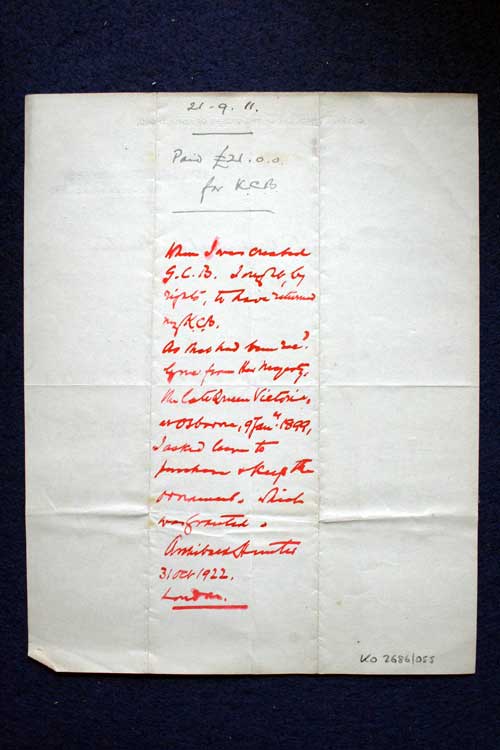 21-9.11.
Paid £21.0.0.
for K.C.B.
When I was created
G.C.B. I ought, by
rights, to have returned
my K.C.B.
As that had been rec.d
by me from Her Majesty,
the late Queen Victoria,
at Osborne, 9 Jan.y 1899,
I asked leave to
purchase & keep the
ornament. which
was granted.
Archibald Hunter
31 Oct 1922.
London.
KO 2686/055